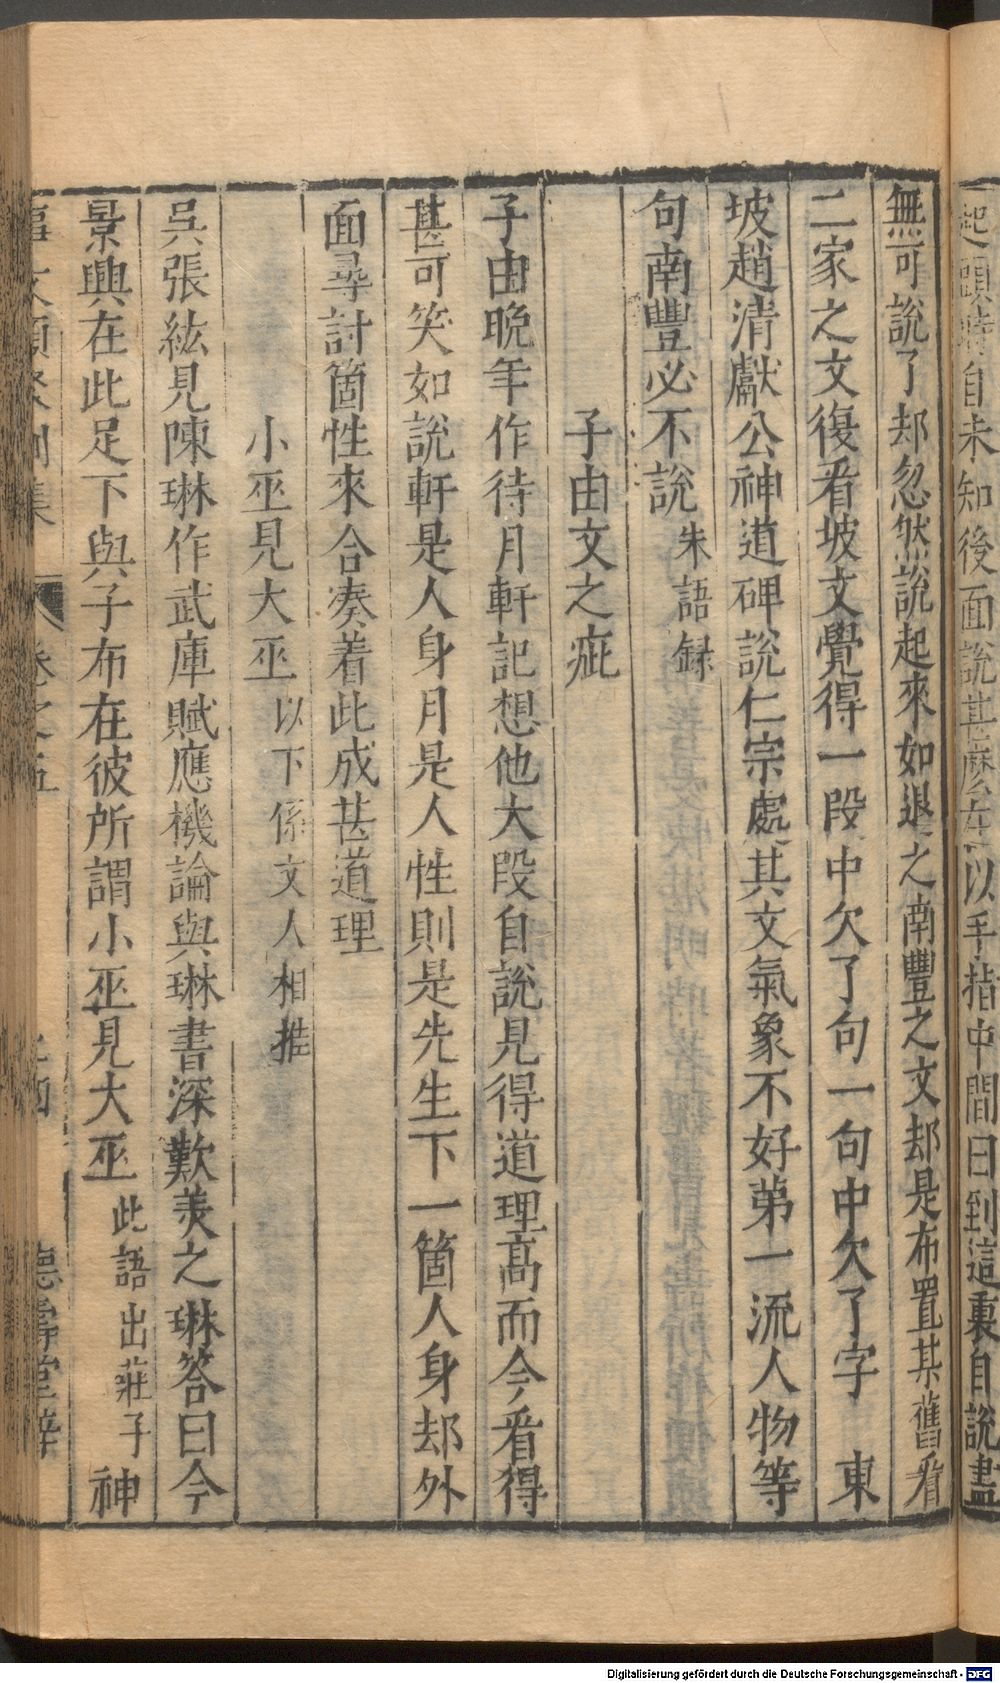 起頭時自未知後面說甚麼在以手指中間曰到這裏自說盡
無可說了却忽然說起來如退之南豐之文却是布置某舊看
二家之文復看坡文覺得一段中欠了句一句中欠了字 東
坡趙清獻公神道碑說仁宗處其文氣象不好第一流人物等
句南豐必不說 朱語録
子由文之疵
子由晚年作待月軒記想他大段自說見得道理高而今看得
甚可笑如說軒是人身月是人性則是先生下一箇人身却外
面尋討箇性來合凑着此成甚道理
小巫見大巫 以下係文人相推
吳張紘見陳琳作武庫賦應機論與琳書深歎美之琳答曰今
景興在此足下與子布在彼所謂小巫見大巫 此語出莊子 神
事文類聚別集 卷之五 德壽堂梓
Digitalisierung gefördert durch die Deutsche Forschungsgemeinschaft - DFG